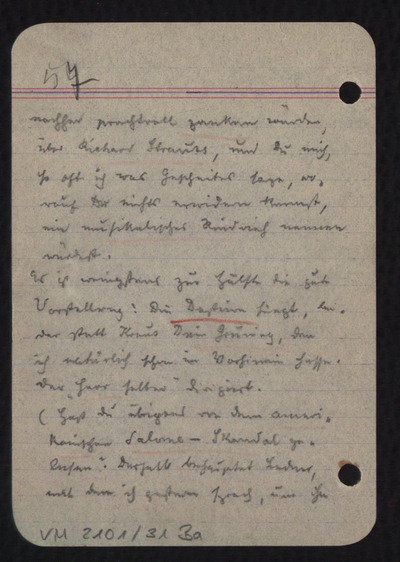 57
nachher prachtvoll zanken würden,
über Richard Strauss, und Du mich,
so oft ich was Gescheites sage, wo-
rauf Du nichts erwidern kannst,
ein musikalisches Rindvieh nennen
würdest.
ich wenigstens zur Hälfte die gute
Vorstellung! Die Destinn singt, lei-
der statt Kraus Dein Grüning, den
ich natürlich schon im Vorhinein hasse.
Der "Herr selber" dirigiert.
(Hast Du übrigens von dem ameri-
kanischen Salome-Skandal ge-
lesen? Deshalb behauptet
mit dem ich gestern sprach, um ihn
VM 2101/31 Ba